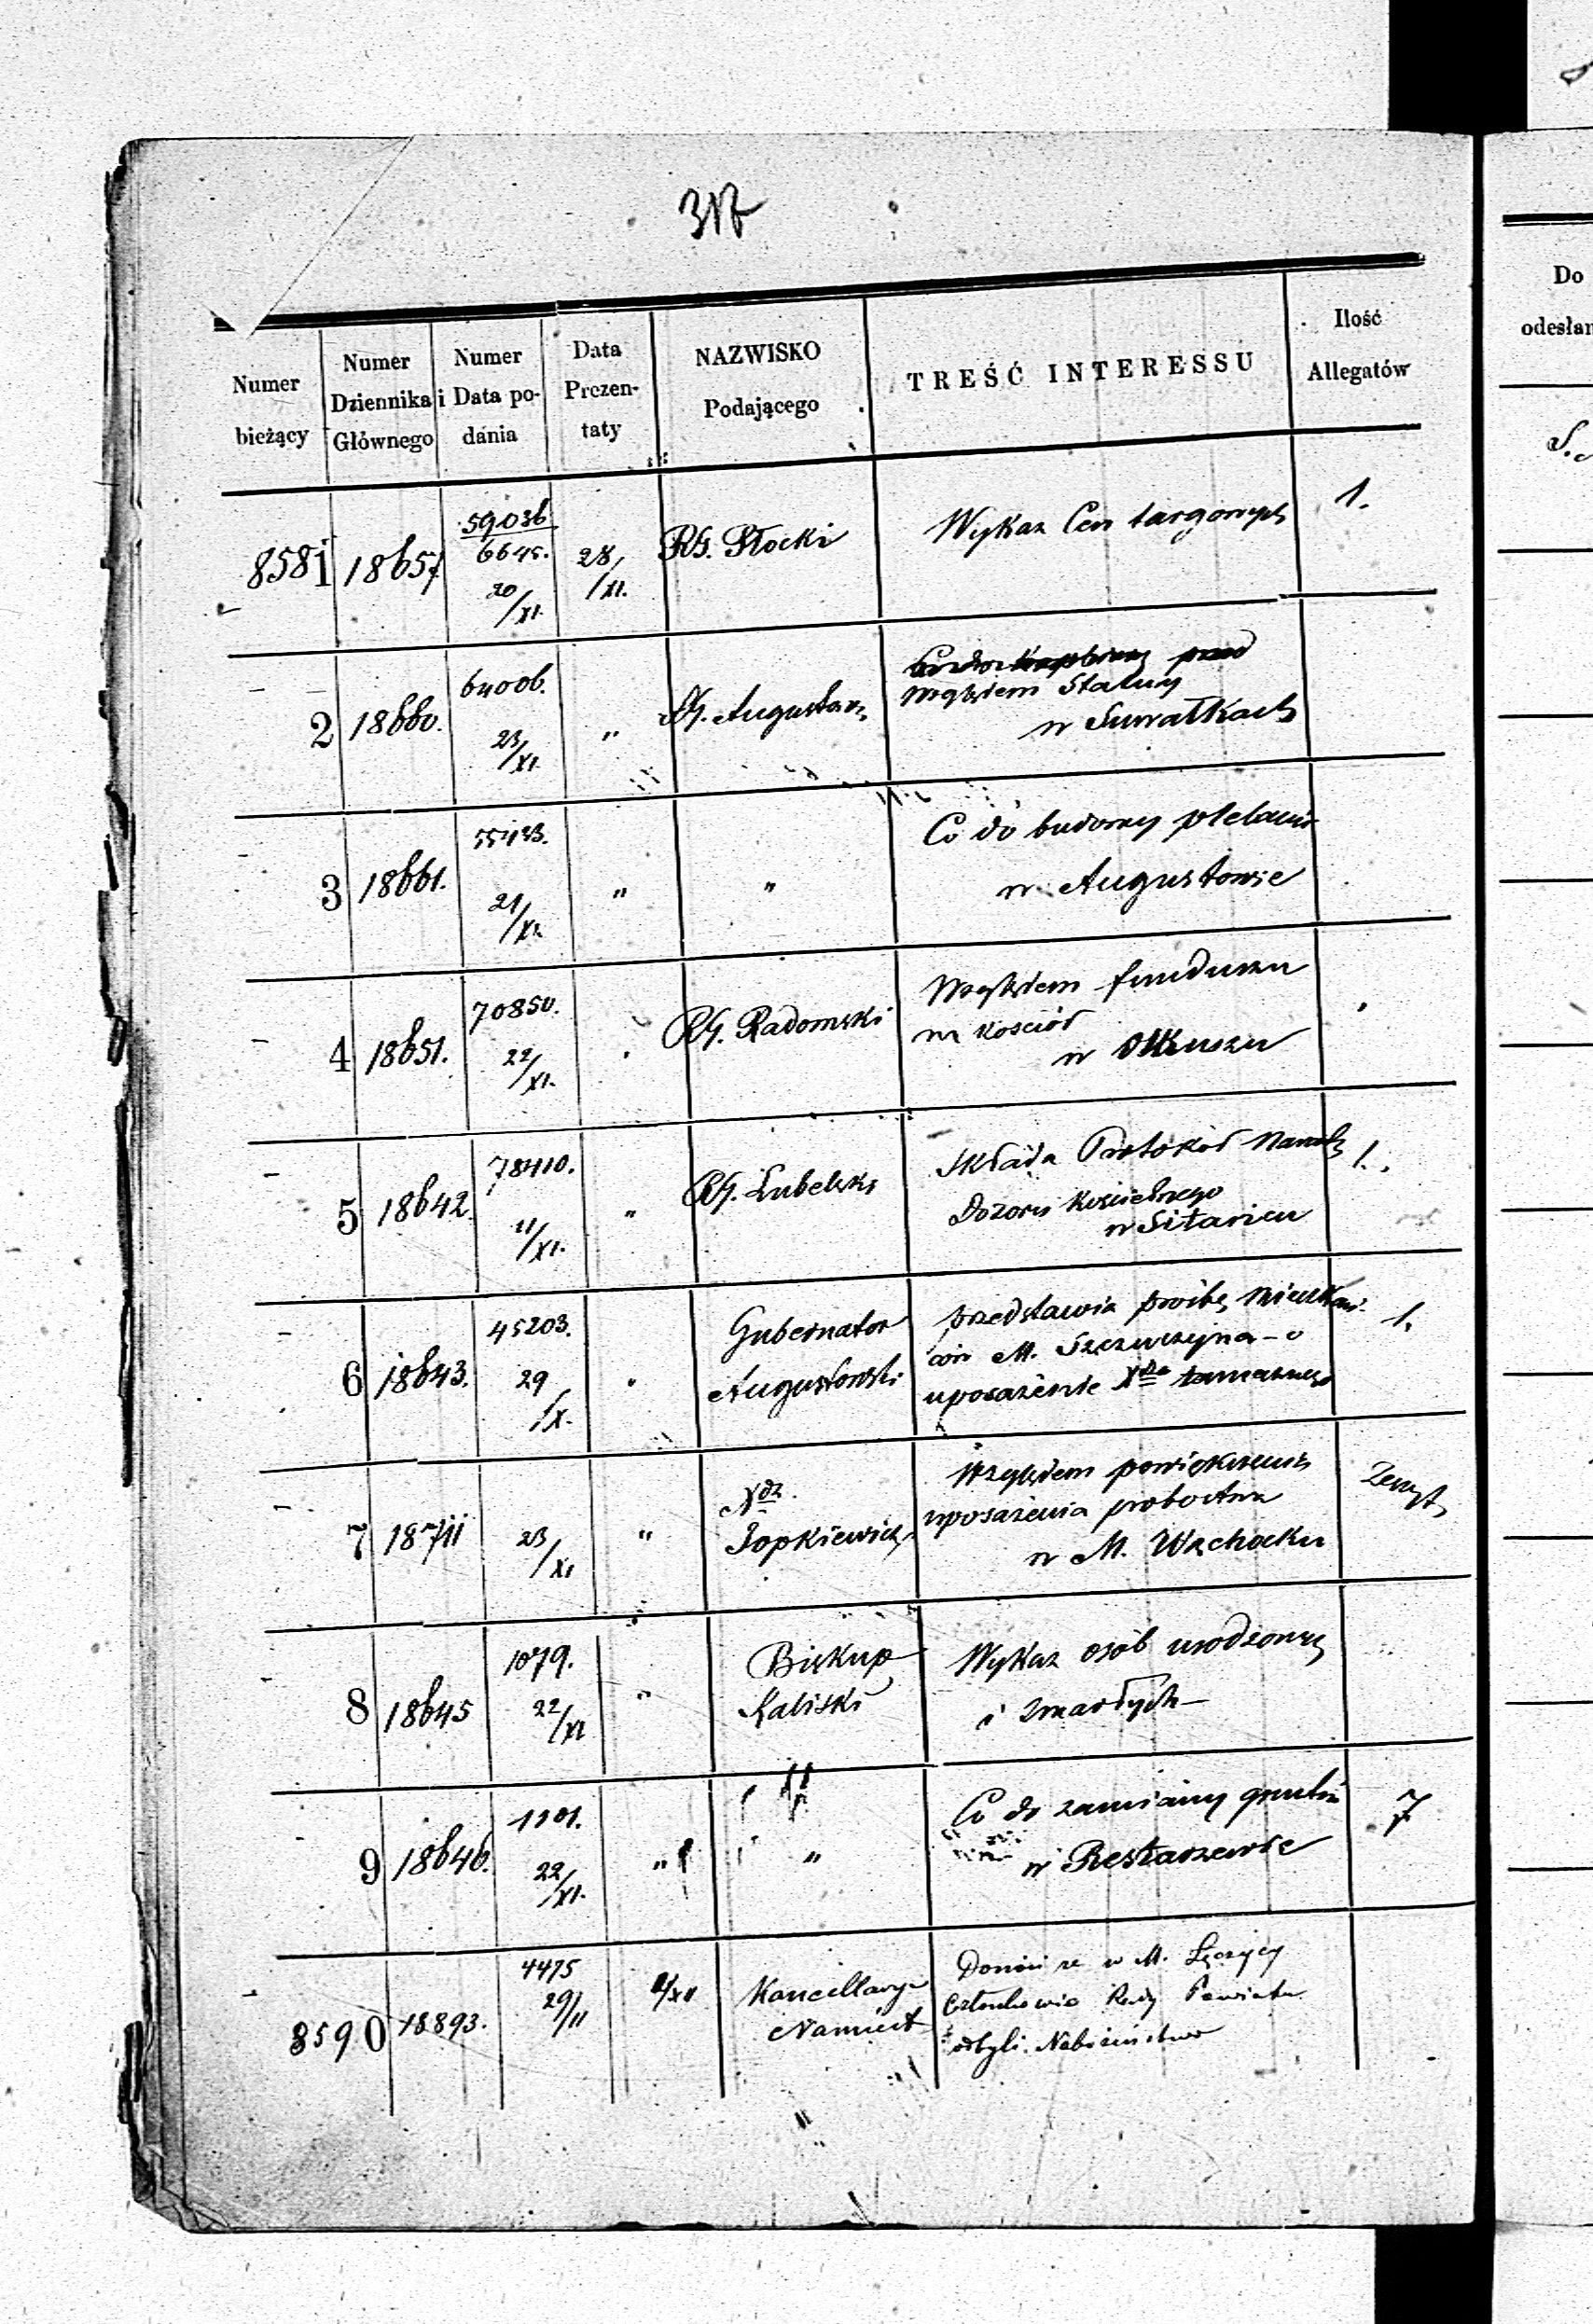 317
Numer bieżący
Numer Dziennika Głównego
Numer i Data podania
Data Prezentaty
NAZWISKO Podającego
TREŚĆ INTERESSU
Ilość Allegatów
Do
odesłan
8581 18657 59036 6645. 20/XI. 28/XI. RG. Płocki Wykaz Cen targowych 1.
2 18660. 64006. 23/XI. " RG. Augustow.
względem Statuy
w Suwałkach
3 18661. 55433. 21/XI. " " Co do budowy plebanii
w Augustowie
4 18651. 70850. 22/XI. RG. Radomski Względem funduszu
na kościół
w Olkuszu
5 18642. 78410. 11/XI. " RG. Lubelski Składa Protokół 1.
Dozoru kościelnego
w Sitańcu
6 18643. 45203. 29/X. Gubernator Augustowski przedstawia prośbę mieszkań- 1.
ców M. Szczuczyna - o
uposażenie Xdza tamaznego
7 18711 23/XI " Xdz. Popkiewicz Względem powiększenia Zeszyt
uposażenia probostwa
w M. Wąchocku
8 18645 1079. 22/XI " Biskup Kaliski Wykaz osób urodzonych
i zmarłych -
9 18646. 1101. 22/XI. " " Co do zamiany gruntów 7
w Restarzewie
8590 18893. 4475 29/11 2/XII Kancellarya Namiest. Donosi że w M. Łęczycy
Członkowie Rady Powiatu
odbyli Nabożeństwo